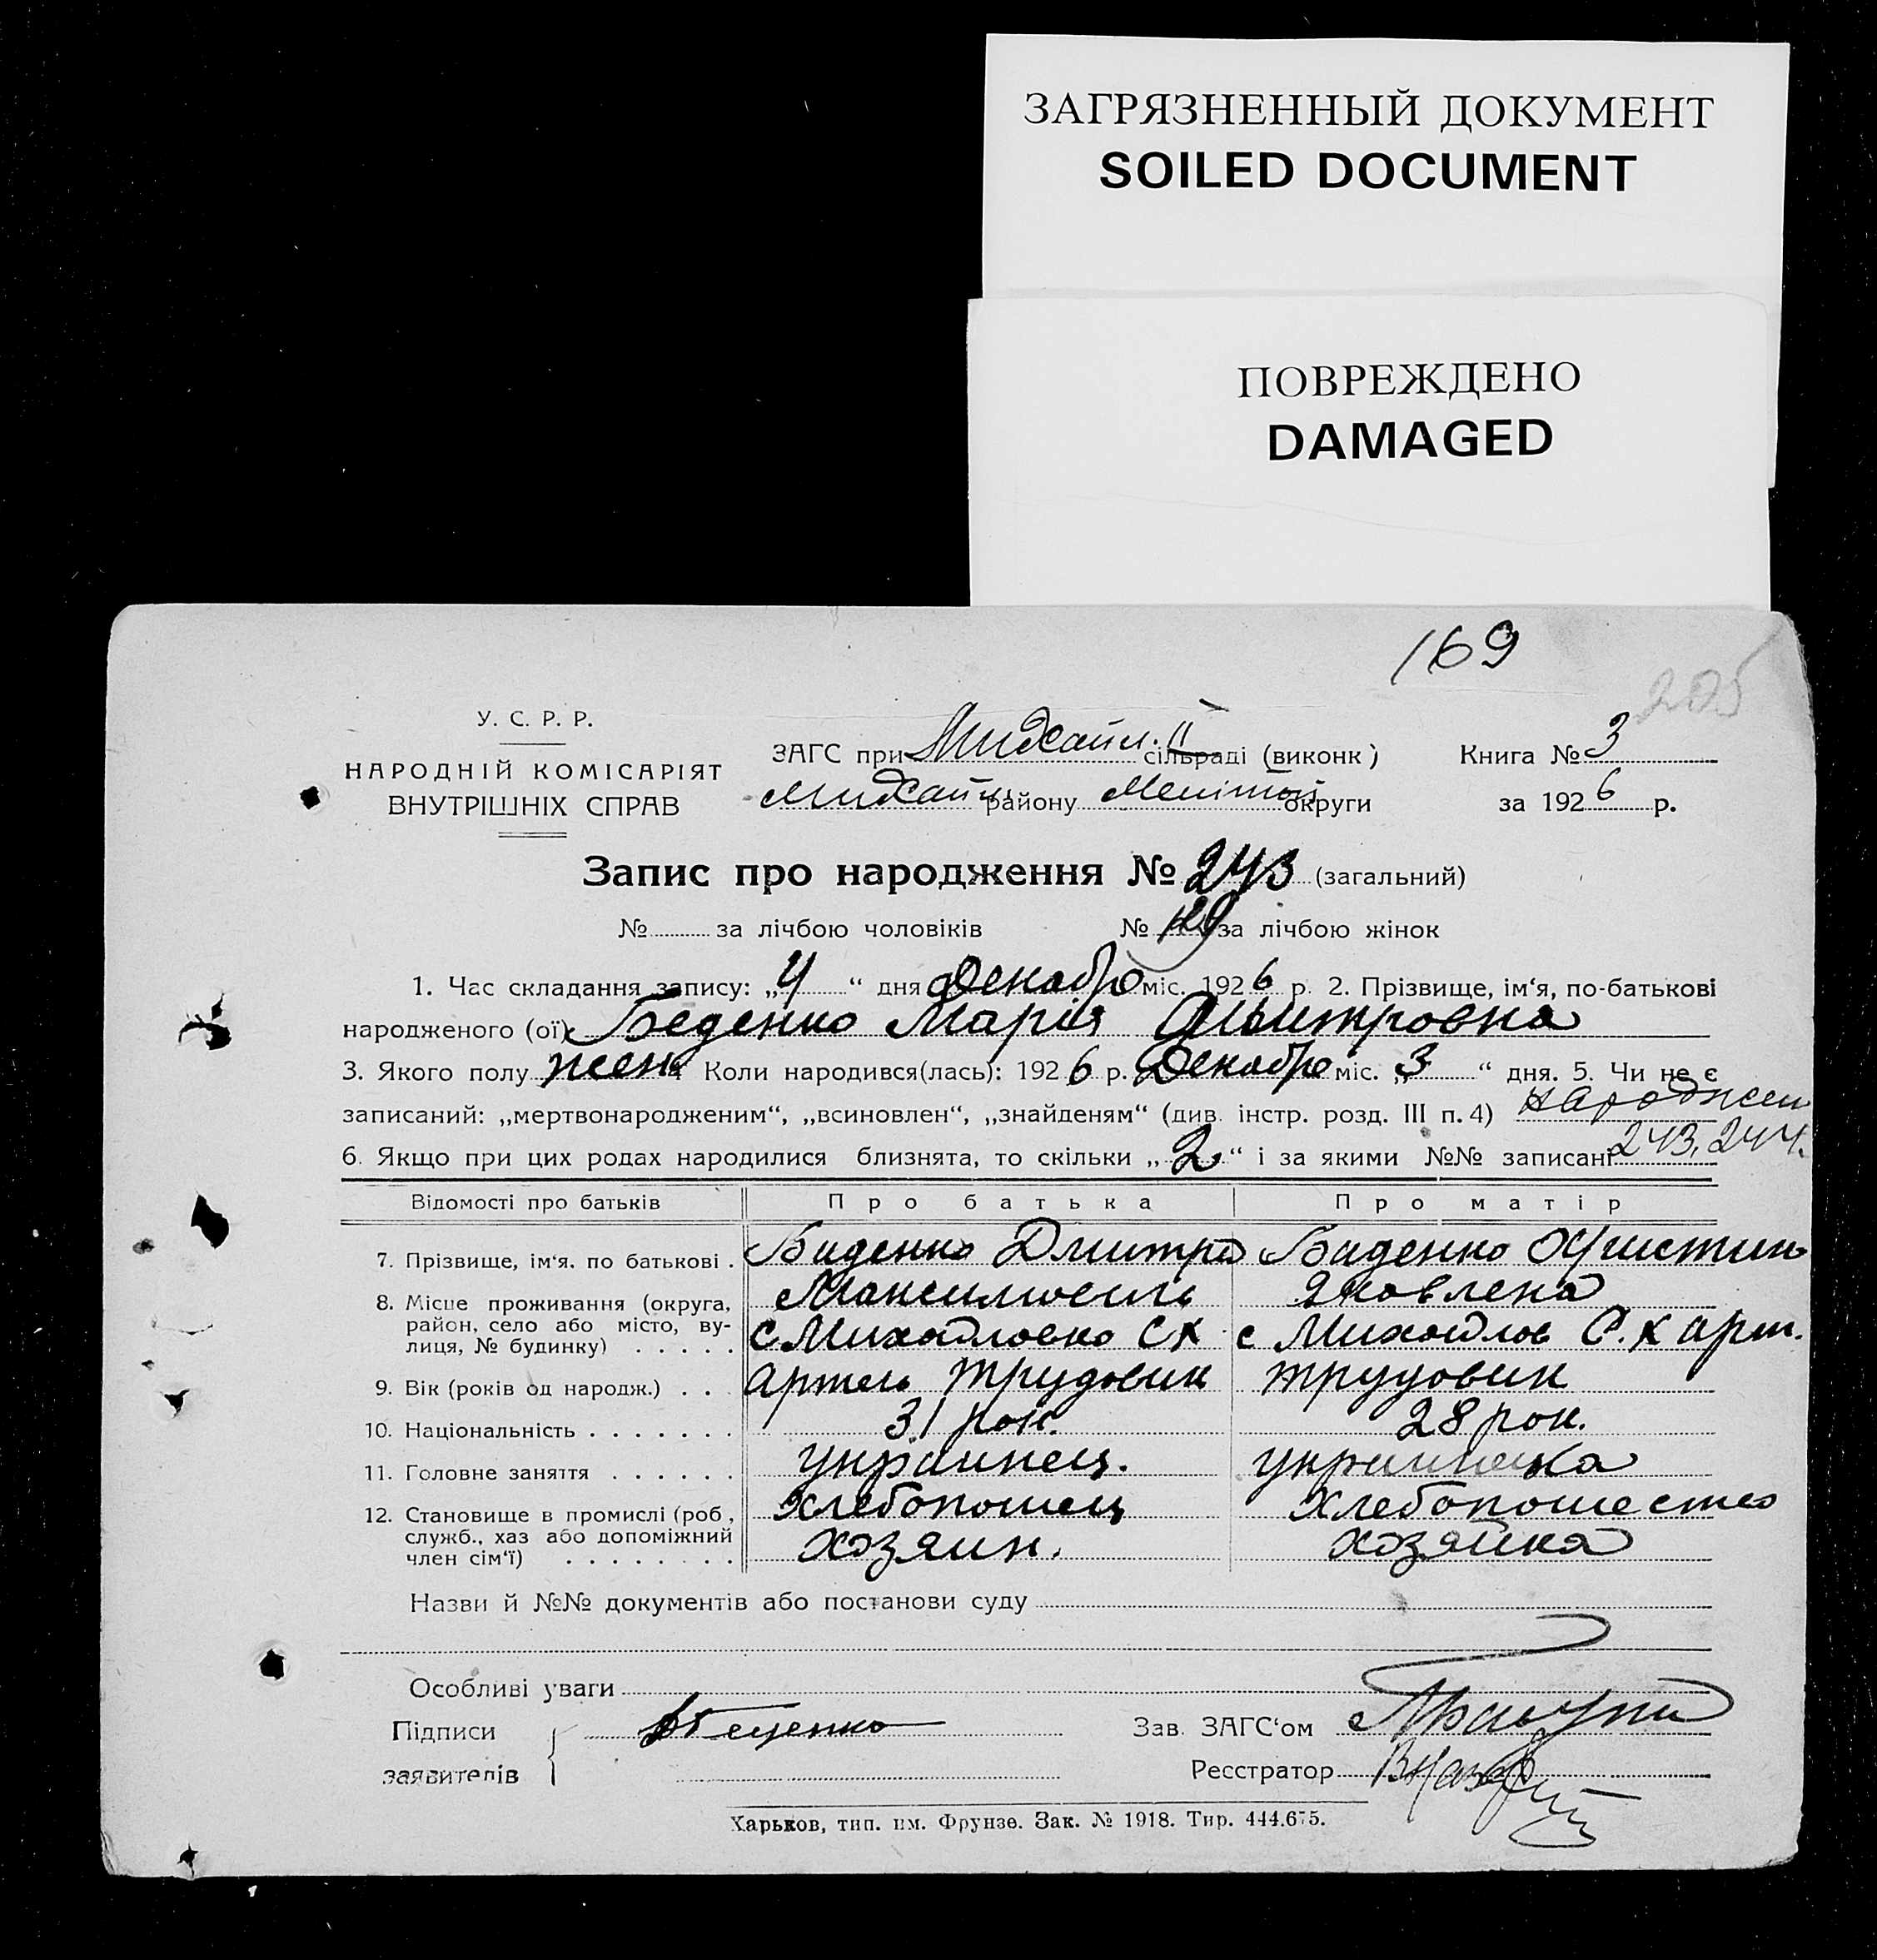 ЗАГРЯЗНЕННЫЙ ДОКУМЕНТ
SOILED DOCUMENT
ПОВРЕЖДЕНО
DAMAGED
169
205
У. С. Р. Р.
НАРОДНІЙ КОМІСАРІЯТ
ВНУТРІШНІХ СПРАВ
ЗАГС при Михайл. II сільраді (виконк)
Книга № 3
Михайл району Меліт округи
за 1926 р.
Запис про народження № 243 (загальний)
№ за лічбою чоловіків № 129 за лічбою жінок
1. Час складання запису: „4“ дня Декабр міс. 1926 р. 2. Прізвище, ім‘я, по-батькові
народженого (ої) Беденко Марія Дмитровна
3. Якого полу жен. Коли народився(лась): 1926 р. Декабр міс. „3“ дня. 5. Чи не є
записаний: „мертвонародженим“, „всиновлен“, „знайденям“ (див. інстр. розд. III п. 4) народжен
6. Якщо при цих родах народилися близнята, то скільки „2“ і за якими №№ записані 243, 244.
Відомості про батьків Про батька Про матір
7. Прізвище, ім‘я. по батькові . Биденко Дмитро Биденко
8. Місце проживання (округа, район, село або місто, вулиця, № будинку) . . . . . Яковлена
с Михайловко СХ с Михайлов С.Х арт.
9. Вік (років од народж.) . . артель трудовик трудовик
10. Національність . . . . . . . 31 рок. 28 рок.
11. Головне заняття . . . . . . украинец. украинка
12. Становище в промислі (роб, служб., хаз або допоміжний член сім‘ї) . . . . . . . . хлебопошец
хозяин. хозяйка
Назви й №№ документів або постанови суду
Особливі уваги
Підписи
заявителів
Зав. ЗАГС‘ом
Реєстратор
Харьков, тип. им. Фрунзе. Зак. № 1918. Тир. 444.675.